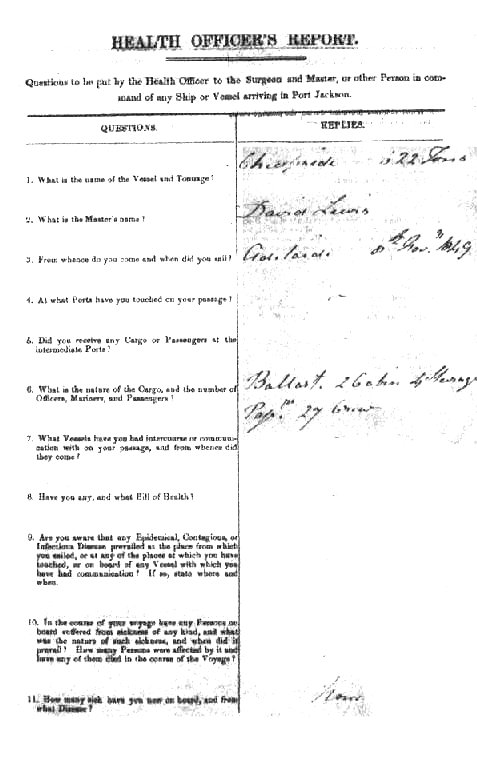 HEALTH OFFICER'S REPORT.
Questions to be put by the Health Officer to the Surgeon and Master, or other Person in com-
mand of any Ship or Vessel arriving in Port Jackson.
QUESTIONS.
REPLIES.
1. What is the name of the Vessel and Tonnage?
622 Tons
2. What is the Master's name?
David Lewis
3. From whence do you come and when did you sail?
Adelaide 8th Nov. 1849
4. At what Ports have you touched on your passage?
5. Did you receive any Cargo or Passengers at the
intermediate Ports?
6. What is the nature of the Cargo, and the number of
Officers, Mariners, and Passengers?
Ballast. 2 Cabin 4 Steerage
27 Crew
7. What Vessels have you had intercourse or commun-
cation with on your passage, and from whence did
they come?
8. Have you any, and what Bill of Health?
9. Are you aware that any Epidemical, Contagious, or
Infectious Disease prevailed at the place from which
you sailed, or at any of the places at which you have
touched, or on board of any Vessel with which you
have had communication? If so, state where and
when.
10. In the course of your voyage have any Persons on
board suffered from sickness of any kind, and what
was the nature of such sickness, and when did it
prevail? How many Persons were affected by it and
have any of them died in the course of the Voyage?
11. How many sick have you now on board, and from
what Disease?
None